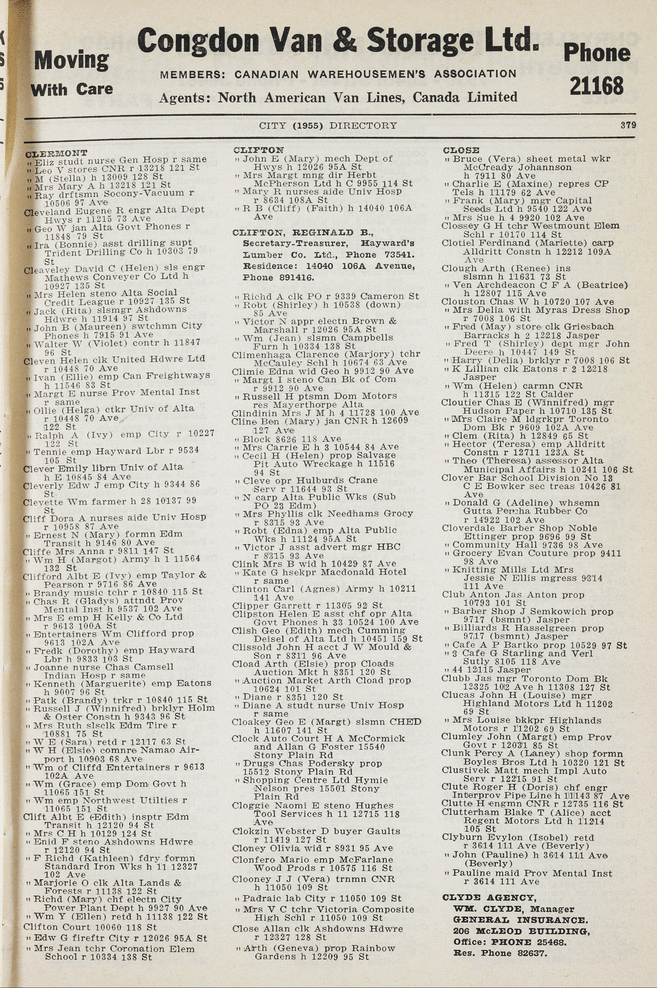 Moving
With Care
Congdon Van & Storage Ltd.
MEMBERS: CANADIAN WAREHOUSEMEN'S ASSOCIATION
Agents: North American Van Lines, Canada Limited
Phone
21168
CITY (1955) DIRECTORY
379
CLERMONT
" Eliz studt nurse Gen Hosp r same
" Leo V stores CNR r 13218 121 St
" M (Stella) h 13009 128 St
" Mrs Mary A h 13218 121 St
" Ray drftsmn Socony-Vacuum r
10506 97 Ave
Cleveland Eugene R engr Alta Dept
Hwys r 11215 73 Ave
" Geo W jan Alta Govt Phones r
11848 79 St
" Ira (Bonnie) asst drilling supt
Trident Drilling Co h 10303 79
St
Cleaveley David C (Helen) sls engr
Mathews Conveyer Co Ltd h
10927 135 St
" Mrs Helen steno Alta Social
Credit League r 10927 135 St
" Jack (Rita) slsmgr Ashdowns
Hdwre h 11914 97 St
" John B (Maureen) swtchmn City
Phones h 7915 91 Ave
" Walter W (Violet) contr h 11847
96 St
Cleven Helen clk United Hdwre Ltd
r 10448 70 Ave
" Ivan (Ellie) emp Can Freightways
h 11546 83 St
" Margt E nurse Prov Mental Inst
r same
" Ollie (Helga) ctkr Univ of Alta
r 10448 70 Ave
122 St
" Ralph A (Ivy) emp City r 10227
122 St
" Tennie emp Hayward Lbr r 9534
105 St
Clever Emily librn Univ of Alta
h E 10845 84 Ave
Cleverly Edw J emp City h 9344 86
St
Clevette Wm farmer h 28 10137 99
St
Cliff Dora A nurse aide Univ Hosp
r 10958 87 Ave
" Ernest N (Mary) formn Edm
Transit h 9146 80 Ave
Cliffe Mrs Anna r 9811 147 St
" Wm H (Margot) Army h 1 11564
132 St
Clifford Albt E (Ivy) emp Taylor &
Pearson r 9716 86 Ave
" Brandy music tchr r 10840 115 St
" Chas R (Gladys) attndt Prov
Mental Inst h 9537 102 Ave
" Mrs E emp H Kelly & Co Ltd
r 9613 100A St
" Entertainers Wm Clifford prop
9613 102A Ave
" Fredk (Dorothy) emp Hayward
Lbr h 9833 103 St
" Joanne nurse Chas Camsell
Indian Hosp r same
" Kenneth (Marguerite) emp Eatons
h 9007 96 St
" Patk (Brandy) trkr r 10840 115 St
" Russell J (Winnifred) brklyr Holm
& Oster Constn h 9343 96 St
" Mrs Ruth slsclk Edm Tire r
10881 75 St
" W E (Sara) retd r 12117 63 St
" W H (Elsie) comnre Namao Air-
port h 10903 68 Ave
" Wm of Cliffd Entertainers r 9613
102A Ave
" Wm (Grace) emp Dom Govt h
11065 151 St
" Wm emp Northwest Utilties r
11065 151 St
Clift Albt E (Edith) insptr Edm
Transit h 12120 94 St
" Mrs C H h 10129 124 St
" Enid F steno Ashdowns Hdwre
r 12120 94 St
" F Richd (Kathleen) fdry formn
Standard Iron Wks h 11 12327
102 Ave
" Marjorie O clk Alta Lands &
Forests r 11138 122 St
" Richd (Mary) chf electn City
Power Plant Dept h 9927 90 Ave
" Wm Y (Ellen) retd h 11138 122 St
Clifton Court 10060 118 St
" Edw G fireftr City r 12026 95A St
" Mrs Jean tchr Coronation Elem
School r 10334 138 St
CLIFTON
" John E (Mary) mech Dept of
Hwys h 12026 95A St
" Mrs Margt mng dir Herbt
McPherson Ltd h C 9955 114 St
" Mary R nurses aide Univ Hosp
r 8634 108A St
" R B (Cliff) (Faith) h 14040 106A
Ave
CLIFTON, REGINALD B.,
Secretary-Treasurer, Hayward's
Lumber Co. Ltd., Phone 73541.
Residence: 14040 106A Avenue,
Phone 891416.
" Richd A clk PO r 9339 Cameron St
" Robt (Shirley) h 10538 (down)
85 Ave
" Victor N appr electn Brown &
Marshall r 12026 95A St
" Wm (Jean) slsmn Campbells
Furn h 10334 138 St
Climenhaga Clarke (Marjory) tchr
McCauley Schl h 10674 63 Ave
Climie Edna wid Geo h 9912 90 Ave
" Margt I steno Can Bk of Com
r 9912 90 Ave
" Russell H ptsmn Dom Motors
res Mayerthorpe Alta
Clindinin Mrs J M h 4 11728 100 Ave
Cline Ben (Mary) jan CNR h 12609
127 Ave
" Block 8626 118 Ave
" Mrs Carrie E h 3 10544 84 Ave
" Cecil H (Helen) prop Salvage
Pit Auto Wreckage h 11516
94 St
" Cleve opr Hulburds Crane
Serv r 11644 93 St
" N carp Alta Public Wks (Sub
PO 23 Edm)
" Mrs Phyllis clk Needhams Grocy
r 8315 93 Ave
" Robt (Edna) emp Alta Public
Wks h 11124 95A St
" Victor J asst advert mgr HBC
r 8315 93 Ave
Clink Mrs B wid h 10429 87 Ave
" Kate G hsekpr Macdonald Hotel
r same
Clinton Carl (Agnes) Army h 10211
141 Ave
Clipper Garrett r 11305 92 St
Clipston Helen E asst chf opr Alta
Govt Phones h 33 10524 100 Ave
Clish Geo (Edith) mech Cumming
Deisel of Alta Ltd h 10451 159 St
Clissold John H acct J W Mould &
Son r 8311 96 Ave
Cload Arth (Elsie) prop Cloads
Auction Mkt h 8351 120 St
" Auction Market Arth Cload prop
10624 101 St
" Diane r 8351 120 St
" Diane A studt nurse Univ Hosp
r same
Cloakey Geo E (Margt) slsmn CHED
h 11607 141 St
Clock Auto Court H A McCormick
and Allan G Foster 15540
Stony Plain Rd
" Drugs Chas Podersky prop
15512 Stony Plain Rd
" Shopping Centre Ltd Hymie
Nelson pres 15501 Stony
Plain Rd
Cloggie Naomi E steno Hughes
Tool Services h 11 12715 118
Ave
Clokzin Webster D buyer Gaults
r 11419 127 St
Cloney Olivia wid r 8931 95 Ave
Clonfero Mario emp McFarlane
Wood Prods r 10575 116 St
Clooney J J (Vera) trnmn CNR
h 11050 109 St
" Padraic lab City r 11050 109 St
" Mrs V C tchr Victoria Composite
High Schl r 11050 109 St
Close Allan clk Ashdowns Hdwre
r 12327 128 St
" Arth (Geneva) prop Rainbow
Gardens h 12209 95 St
CLOSE
" Bruce (Vera) sheet metal wkr
McCready Johannson
h 7911 80 Ave
" Charlie E (Maxine) repres CP
Tels h 11179 62 Ave
" Frank (Mary) mgr Capital
Seeds Ltd h 9540 122 Ave
" Mrs Sue h 4 9920 102 Ave
Clossey G H tchr Westmount Elem
Schl r 10170 114 St
Clotiel Ferdinand (Mariette) carp
Alldritt Constn h 12212 109A
Ave
Clough Arth (Renee) ins
slsmn h 11631 73 St
" Ven Archdeacon C F A (Beatrice)
h 12807 115 Ave
Clouston Chas W h 10720 107 Ave
" Mrs Delia with Myras Dress Shop
r 7008 106 St
" Fred (May) store clk Griesbach
Barracks h 2 12218 Jasper
" Fred T (Shirley) dept mgr John
Deere h 10447 149 St
" Harry (Delia) brklyr r 7008 106 St
" K Lillian clk Eatons r 2 12218
Jasper
" Wm (Helen) carmn CNR
h 11315 122 St Calder
Cloutier Chas E (Winnifred) mgr
Hudson Paper h 10710 135 St
" Mrs Claire M ldgrkpr Toronto
Dom Bk r 9609 102A Ave
" Clem (Rita) h 12849 65 St
" Hector (Teresa) emp Alldritt
Constn r 12711 123A St
" Theo (Theresa) assessor Alta
Municipal Affairs h 10241 106 St
Clover Bar School Division No 13
C E Bowker sec treas 10426 81
Ave
" Donald G (Adeline) whsemn
Gutta Percha Rubber Co
r 14922 102 Ave
Cloverdale Barber Shop Noble
Ettinger prop 9696 99 St
" Community Hall 9736 98 Ave
" Grocery Evan Couture prop 9411
98 Ave
" Knitting Mills Ltd Mrs
Jessie N Ellis mgress 9314
111 Ave
Club Anton Jas Anton prop
10793 101 St
" Barber Shop J Semkowich prop
9717 (bsmnt) Jasper
" Billiards R Hasselgreen prop
9717 (bsmnt) Jasper
" Cafe A P Bartko prop 10529 97 St
" 3 Cafe G Starling and Verl
Sutly 8105 118 Ave
" 44 12115 Jasper
Clubb Jas mgr Toronto Dom Bk
12325 102 Ave h 11308 127 St
Clucas John H (Louise) mgr
Highland Motors Ltd h 11202
69 St
" Mrs Louise bkkpr Highlands
Motors r 11202 69 St
Clumley John (Margt) emp Prov
Govt r 12031 85 St
Clunk Percy A (Laney) shop formn
Boyles Bros Ltd h 10320 121 St
Clustivek Matt mech Impl Auto
Serv r 12215 91 St
Clute Roger H (Doris) chf engr
Interprov Pipe Line h 11143 87 Ave
Clutte H engmn CNR r 12735 116 St
Clutterham Blake T (Alice) acct
Regent Motors Ltd h 11214
105 St
Clyburn Evylon (Isobel) retd
r 3614 111 Ave (Beverly)
" John (Pauline) h 3614 111 Ave
(Beverly)
" Pauline maid Prov Mental Inst
r 3614 111 Ave
CLYDE AGENCY,
WM. CLYDE, Manager
GENERAL INSURANCE.
206 McLEOD BUILDING,
Office: PHONE 25468.
Res. Phone 82637.